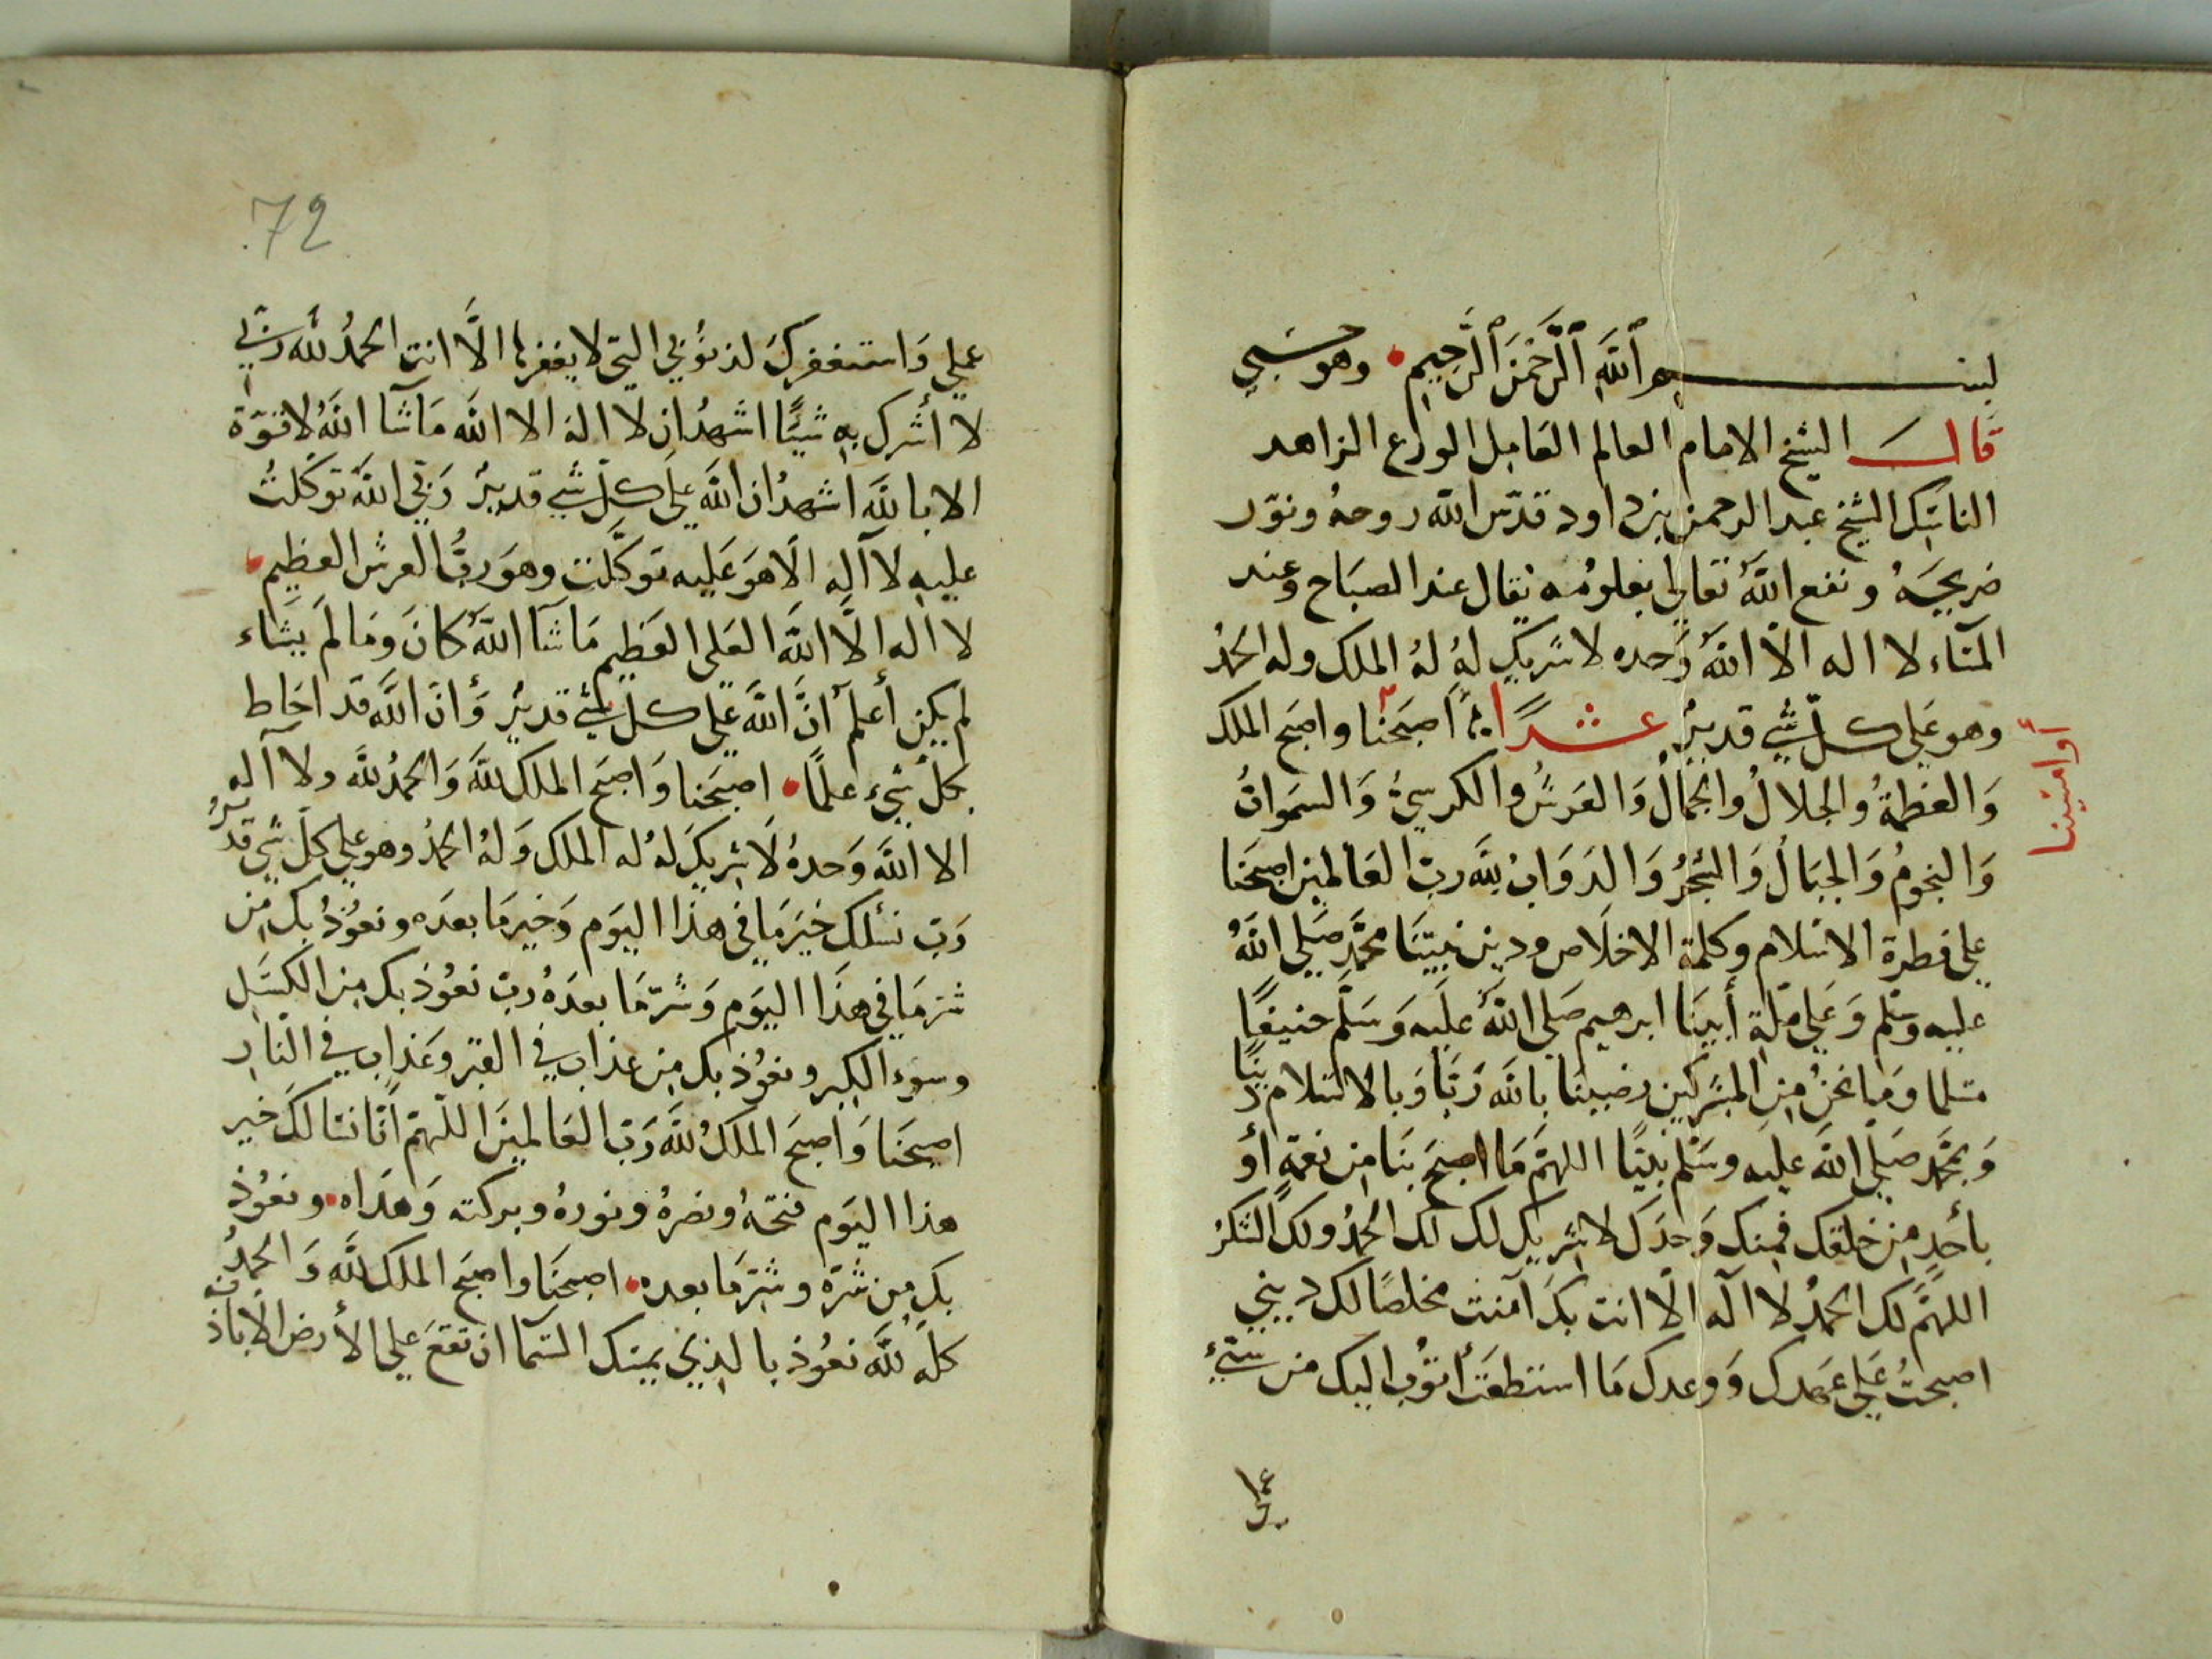 بسم اللَّه الرَّحْمَن الرَّحِيم وهو حسبي
قال الشيخ الامام العالم العامل الورع الزاهد
الناسك الشيخ عبد الرحمن بن داود قدّس اللّه روحهُ ونوّر
ضريحَهُ ونفع اللَّه تعالي بعلومُه يقال عند الصبَاح وعند
المسَاء لا اله الاّ اللَّه وَحده لا شريك لهُ لهُ الملك وله الحمدُ
وهو عَلي كلّ شي قديرٌ عشرًا اصبَحنا واصبح الملك
أوامسَينا
وَالعظمةُ والجلالُ والجمالُ وَالعَرشُ والكرسيُّ وَالسمَواتُ
وَالنجومُ وَالجبَالُ وَالشجرُ وَالدَوَابُ للَّه ربّ العَالمين اصبحَنا
علي فطرة الاسلام وكلمة الاخلَاص ودين نبيّنَا محمَّد صَلي اللَّهُ
عليه وسَلم وَعَلي ملّةِ أبينَا ابرهيم صَلي اللَّهُ عَلَيه وَسَلَّم حنيفًا
مسلما وَما نحنُ مِن المشركين رضينَا باللَّه رَبًّا وَبالاسَلام دينًا
وَبمحَمَّد صَلّي اللَّه عليه وسَلم نبيًّا اللهمَّ مَا اصبحَ بنَا مِن نعمَةٍ أوْ
بأحدٍ مِن خلقك فمنك وَحدَكَ لا شريك لك لك الحمدُ ولك الشكرُ
اللهمَّ لك الحمدُ لا آله الّا انت بكَ آمنت مخلصًا لك ديني
اصبحتُ عَلي عَهدك وَوعدك مَا استطعتَ أتوُب اليك من سَيّئِ
عملي
72
عملي وَاستغفركَ لذنوُبي التي لا يغفرها الَّا انت الحمدُ للَّه ربّي
لا أشرك بهِ شيئًا اشهدُ ان لا اله الا اللَّه مَا شَآ اللَّهُ لا قوّة
الا باللَّه اشهدُ ان اللَّه علَي كلّ شي قديرٌ رَبّي اللَّه توكلتُ
عليه لا آله الّا هوَ عَليه توكَّلت وهوَ ربُّ العرش العظيم
لا اله الَّا اللَّه العَلي العَظِيم مَا شَآ اللَّهُ كانَ وَمَا لمَ يشَاء
لم يكن أعلمُ أنَّ اللَّه علَي كل شي قديرٌ وَأنّ اللَّه قد احَاط
بكلّ شيء علمًا اصبَحنا وَاصبَح الملك للَّه وَالحمدُ للَّه ولا آله
الا اللَّه وَحدهُ لَا شريكَ لهُ له الملك وَلهُ الحمدُ وهو علي كلّ شي قديرٌ
رَبّ نسئلك خيرَ مَا في هذا اليوَم وَخير مَا بعدَه ونعوُذُ بك مِن
شر مَا في هذَا اليوَم وَشرّ مَا بعدَهُ ربّ نعوُذ بك مِن الكسَل
وسوء الكبر ونعوُذ بك مِن عذاب في القبر وعَذاب في النّار
اصبحَنا وَاصبحَ الملكُ للَّه رَبّ العَالمينَ اللّهمّ انّا نسَالكَ خير
هذا اليوَم فتحَهُ ونصرهُ ونورهُ وبركته وَهدَاه ونعوُذ
بك مِن شرّه وشرّ مَا بعده اصبحنَا واصبَح الملك للَّه وَ الحمدُ
كلّه للَّه نعوُذ بالذي يمسك السَمآ ان تقعَ علي الأرض الّا باذنه